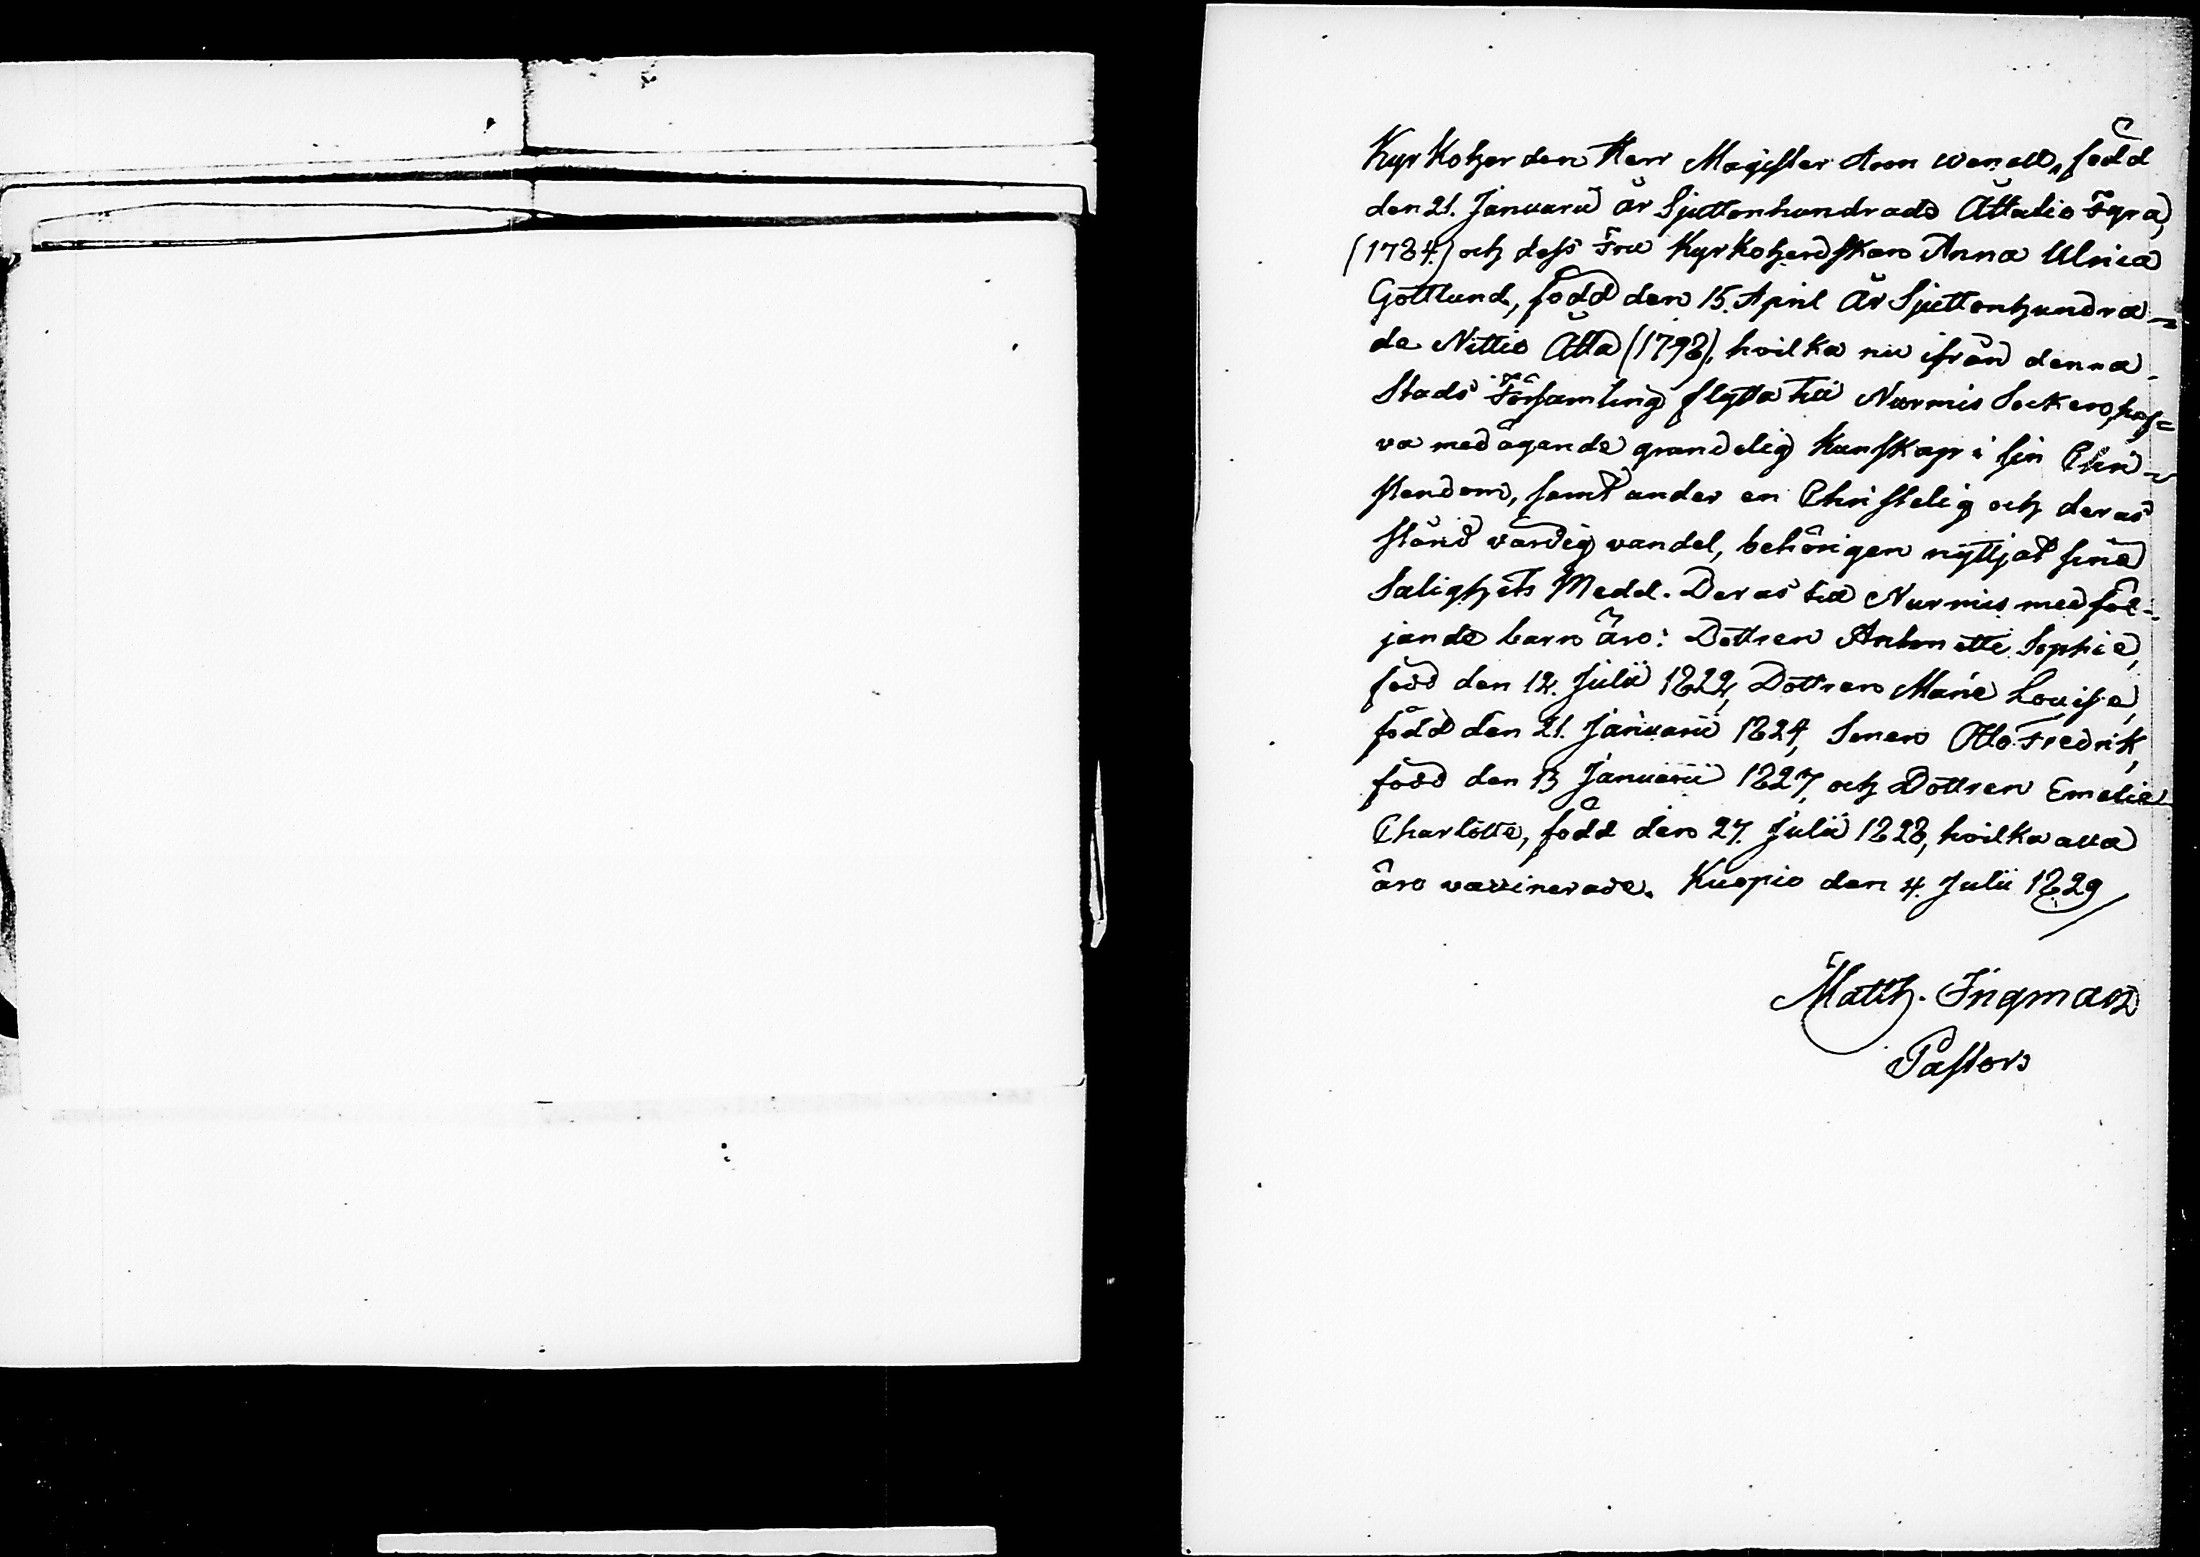 Kyrkoherden Herr Magister Aron Wenell, född
den 21. Januarii År Sjuttonhundrade Åttatio Fyra,
(1784.) och dess Fru Kyrkoherdskan Anna Ulrica
Gottlund, född den 15. April År Sjuttonhundra-
de Nittio Åtta (1798), hvilka nu ifrån denna
Stads Församling flytta till Nurmis Socken, haf-
va med ägande grundelig Kunskap i sin Chri-
stendom, samt under en Christelig och deras
stånd värdig vandel, behörigen nyttjat sine
Salighets Medel. Deras till Nurmis medföl-
jande barn äro: Dottren Antonette Sophie,
född den 12. Julii 1822, Dottren Marie Louise,
född den 21. Januarii 1824, Sonen Otto Fredrik,
född den 13 Januarii 1827, och Dottren Emelie
Charlotte, född den 27. Julii 1828, hvilka alla
äro vaccinerade. Kuopio den 4. Julii 1829
Matth. Ingman
Pastor